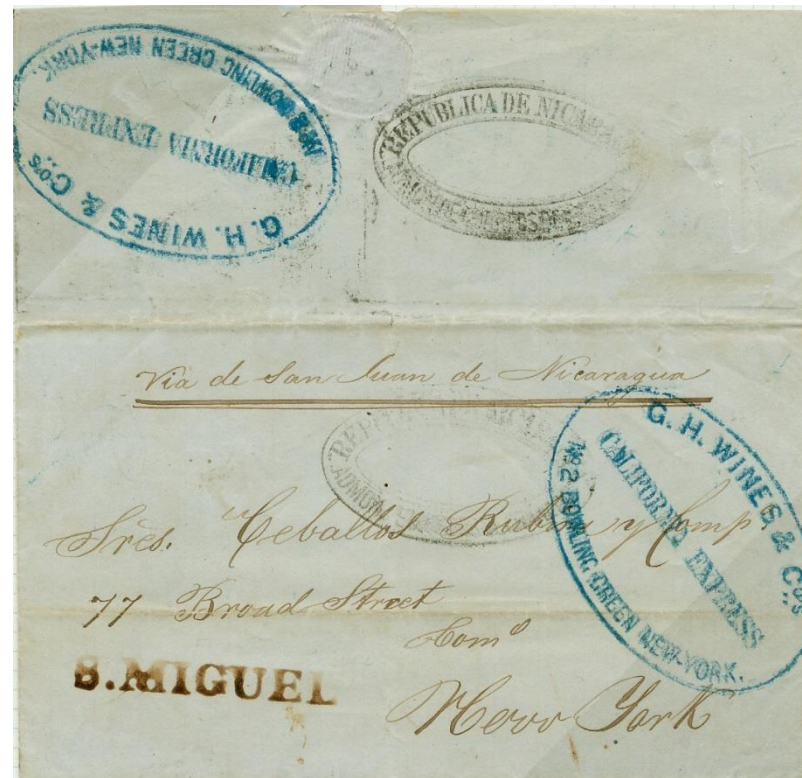 G. H. WINES & Co's
CALIFORNIA EXPRESS
No 2 BOWLING GREEN NEW-YORK.
REPUBLICA DE NICARAG
Via de San Juan de Nicaragua
REPUBLICA
ADMON
G. H. WINES & Co's
CALIFORNIA EXPRESS
No 2 BOWLING GREEN NEW-YORK.
Sres. Ceballos Rubira y Comp.
77 Broad Street
S. MIGUEL
New York